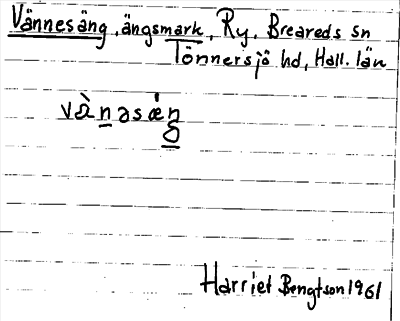 Vännesäng, ängsmark, Ry, Breareds sn
Tönnersjö hd, Hall. län
vànəsæ̀ŋ
Harriet Bengtson 1961